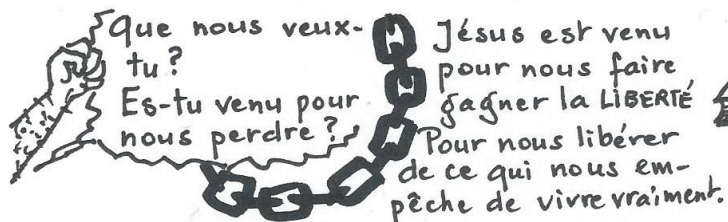 Que nous veux-
tu ?
Es-tu venu pour
nous perdre ?
Jésus est venu
pour nous faire
gagner la LIBERTÉ
Pour nous libérer
de ce qui nous em-
pêche de vivre vraiment.